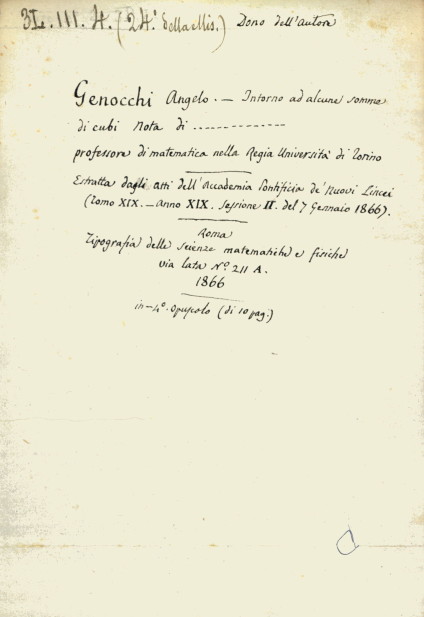 3L.III.4. (24ª della Mis.) Dono dell'autore
Genocchi Angelo. — Intorno ad alcune somme
di cubi Nota di -------------
professore di matematica nella Regia Università di Torino
Estratta dagli atti dell'Accademia Pontificia de' Nuovi Lincei
(Tomo XIX. — Anno XIX. Sessione II. del 7 Gennaio 1866).
Roma
Tipografia delle scienze matematiche e fisiche
via lata Nº. 211 A.
1866
in-4º. Opuscolo (di 10 pag.)